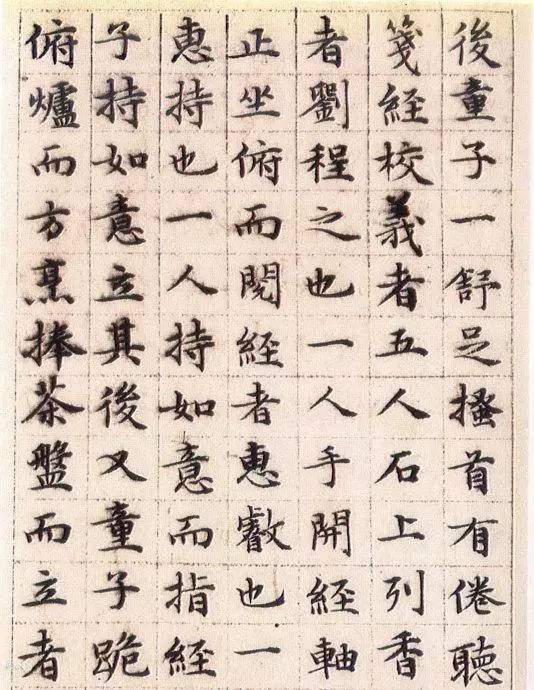 後童子一舒足搔首有倦聽
箋經校義者五人石上列香
者劉程之也一人手開經軸
正坐俯而閱經者惠叡也一
惠持也一人持如意而指經
子持如意立其後又童子跪
俯爐而方烹捧茶盤而立者